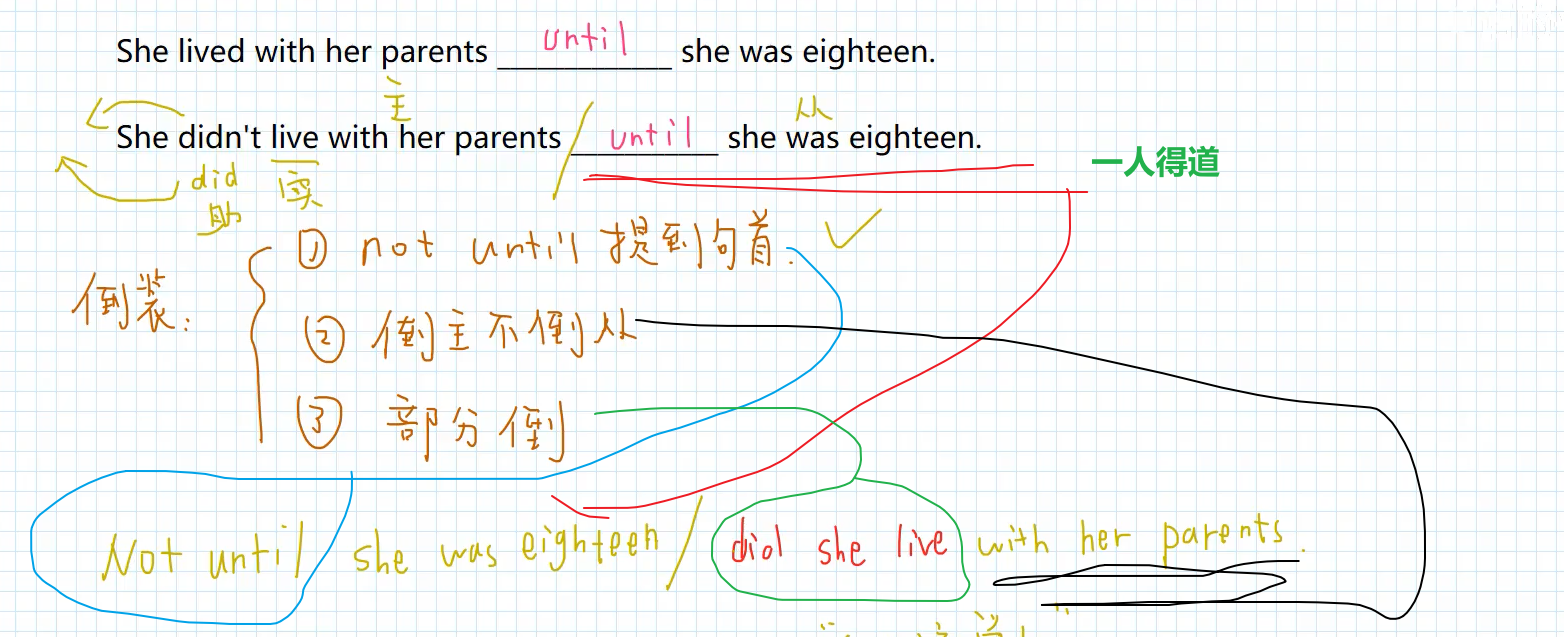 She lived with her parents until she was eighteen.
主 从
She didn't live with her parents until she was eighteen.
一人得道
did 实
助
① not until 提到句首.
倒装:
② 倒主不倒从
③ 部分倒
Not until she was eighteen / did she live with her parents.